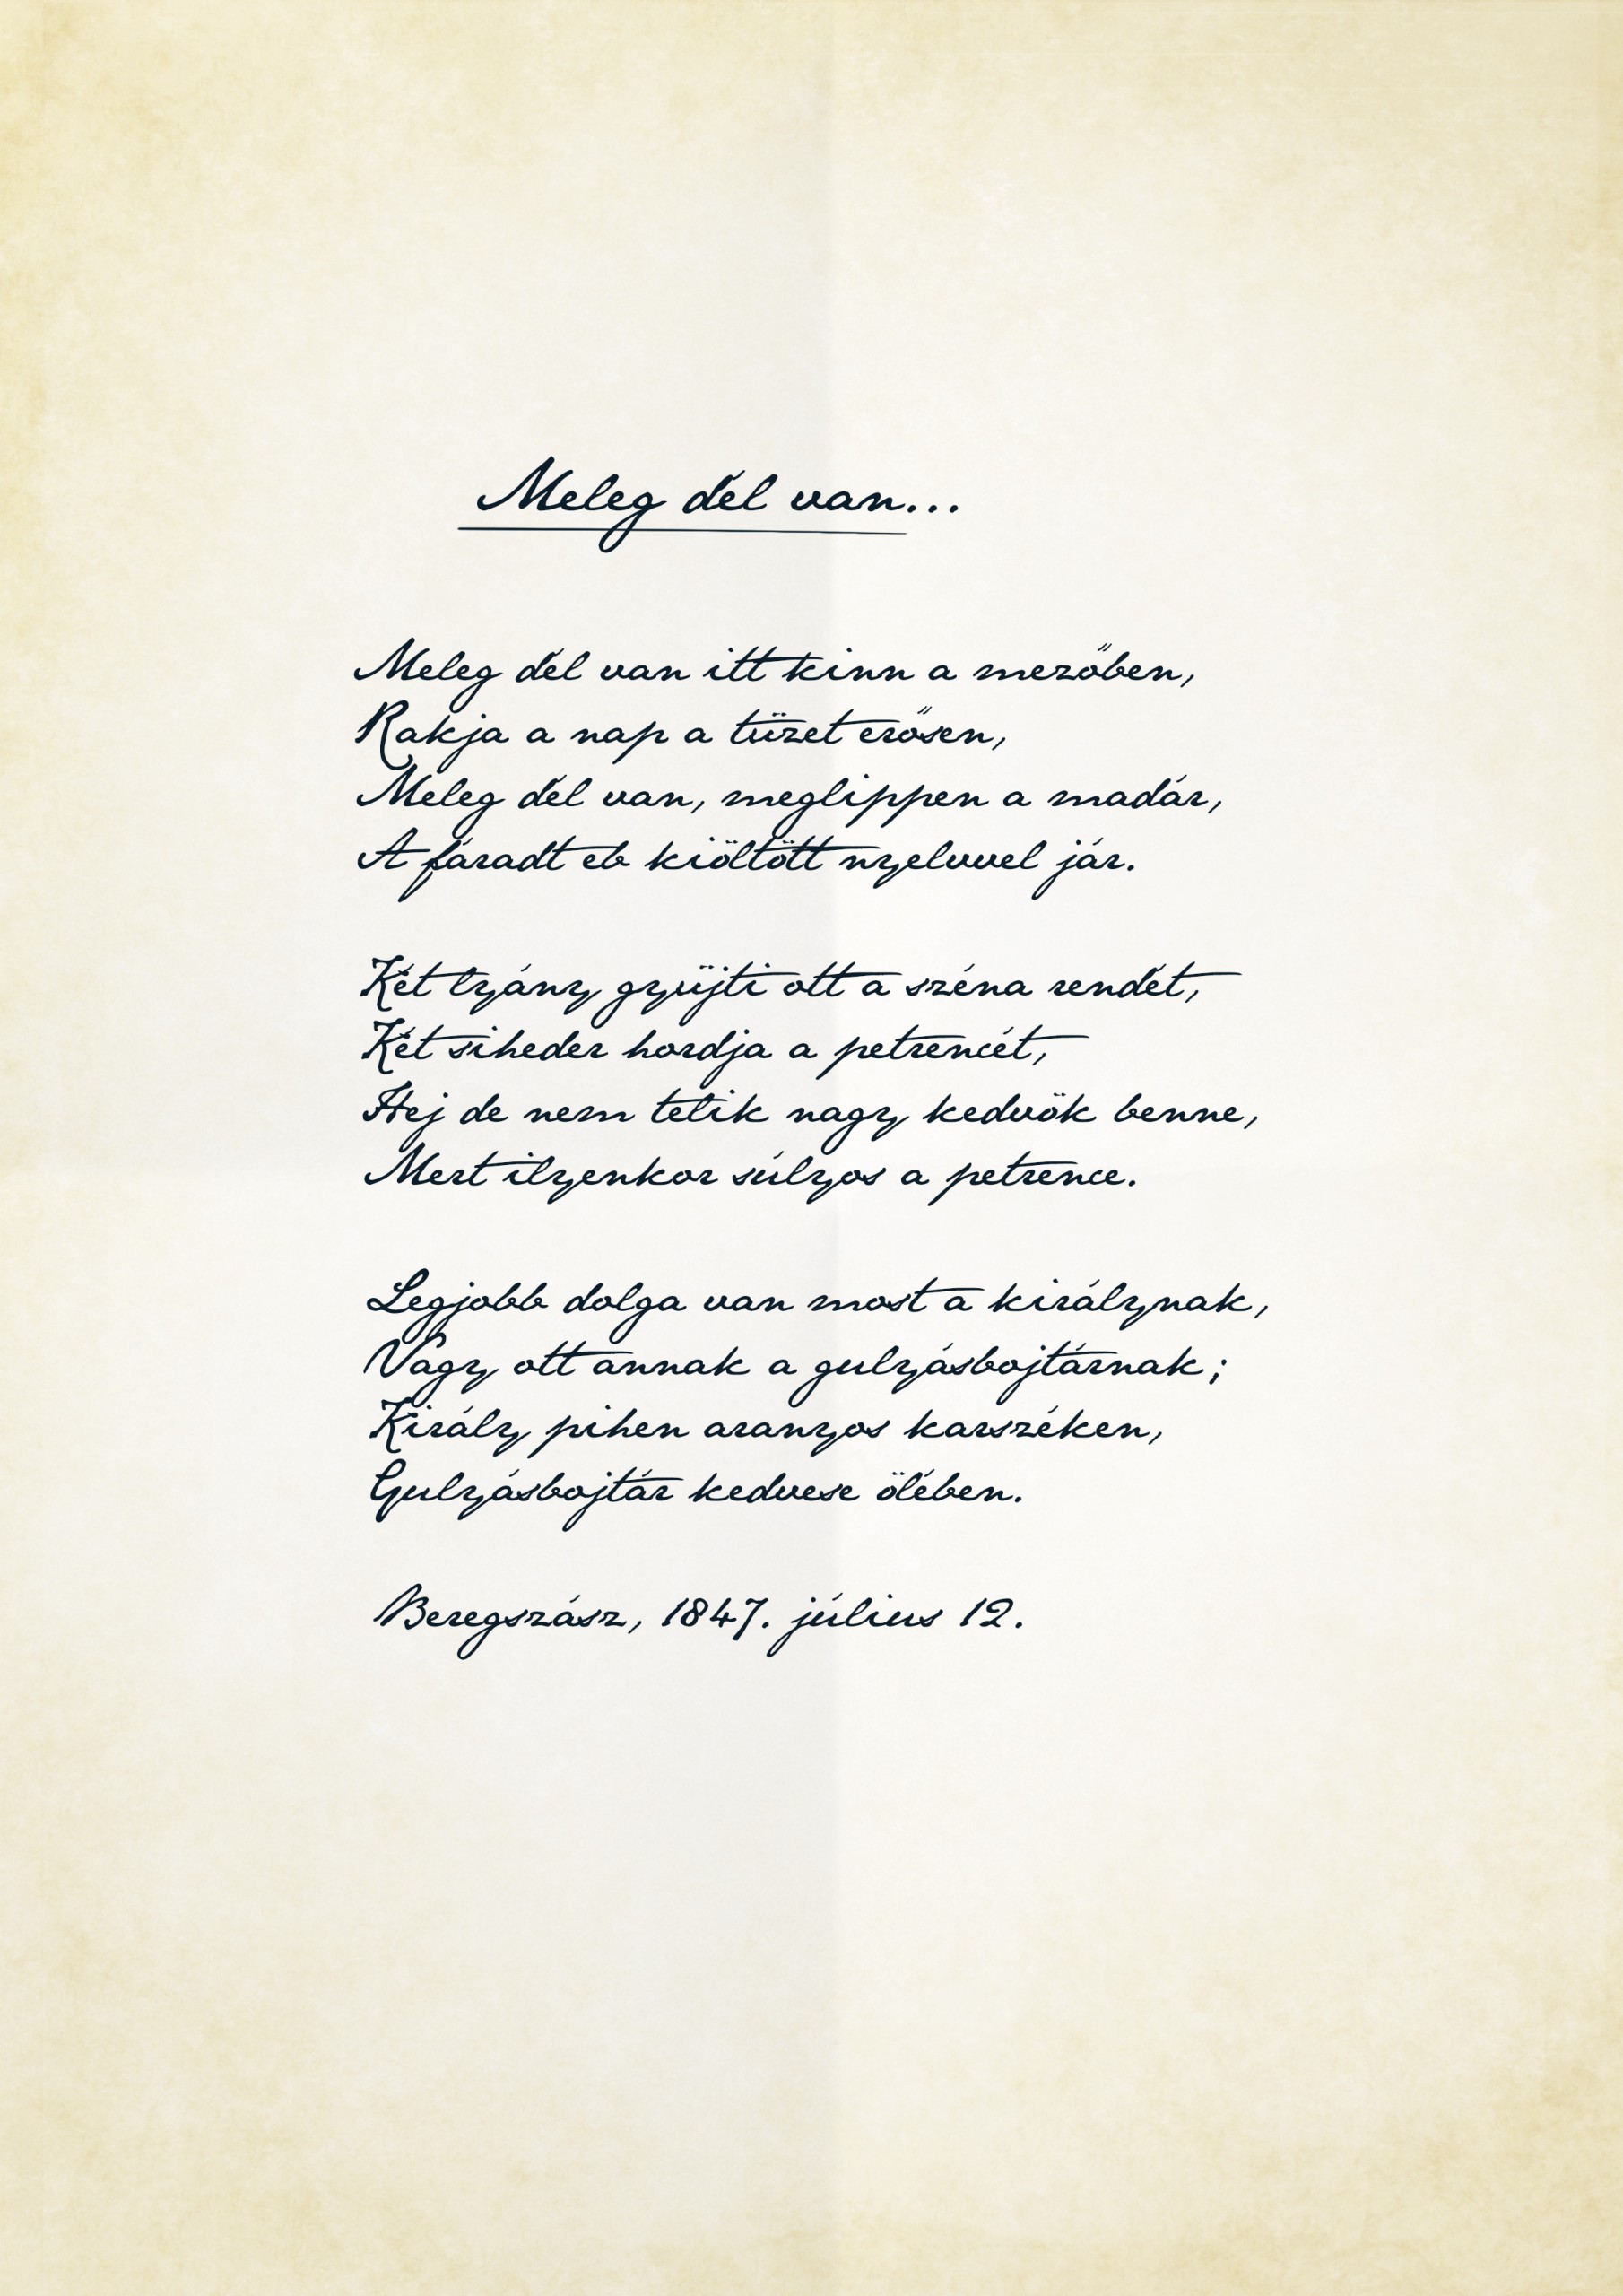 Meleg dél van...
Meleg dél van itt kinn a mezőben,
Rakja a nap a tüzet erősen,
Meleg dél van, meglippen a madár,
A fáradt eb kiöltött nyelvvel jár.
Két lyány gyüjti ott a széna rendét,
Két siheder hordja a petrencét,
Hej de nem telik nagy kedvök benne,
Mert ilyenkor súlyos a petrence.
Legjobb dolga van most a királynak,
Vagy ott annak a gulyásbojtárnak;
Király pihen aranyos karszéken,
Gulyásbojtár kedvese ölében.
Beregszász, 1847. július 12.